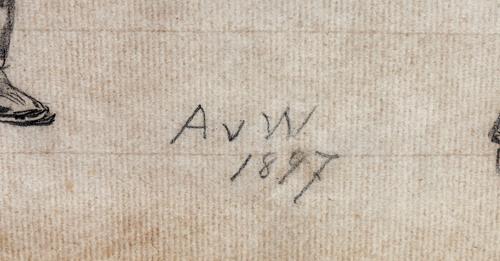 AvW
1897